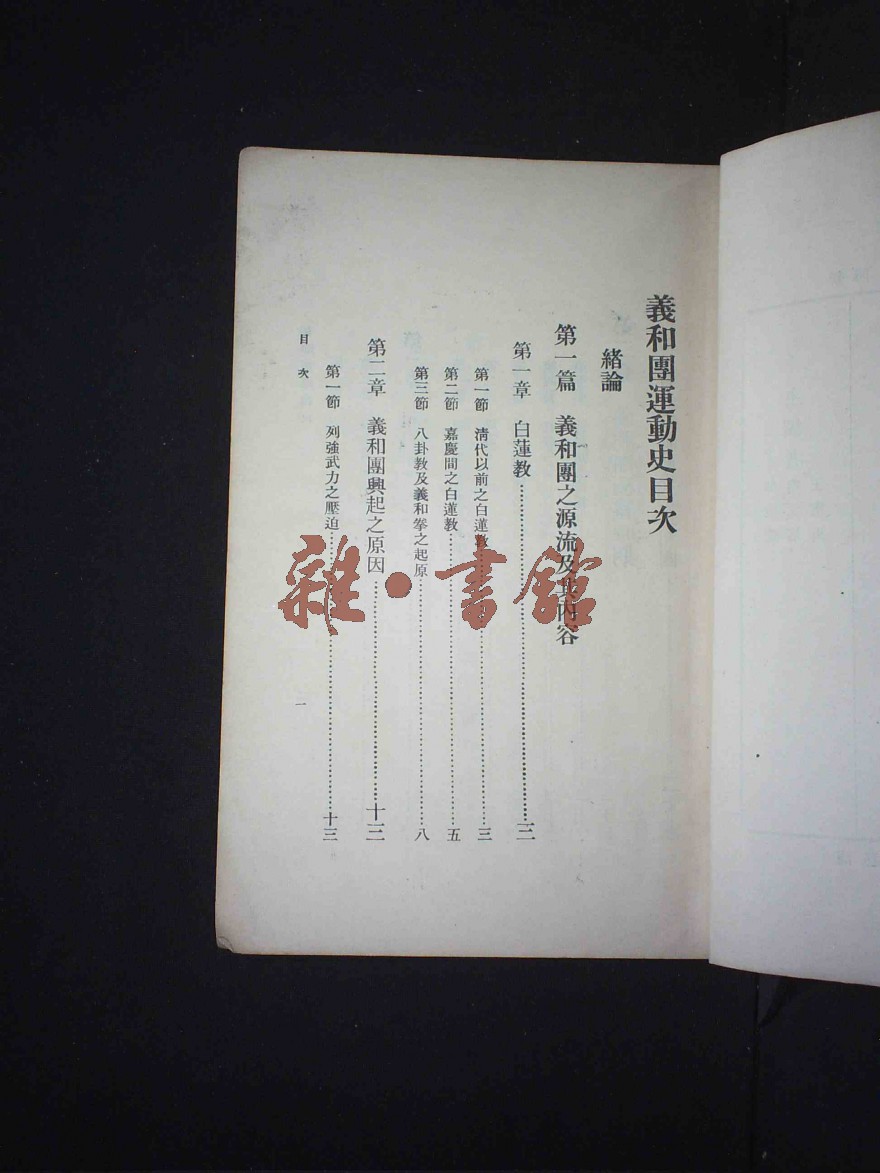 義和團運動史目次
緒論
第一篇 義和團之源流及其內容
第一章 白蓮教……三
第一節 清代以前之白蓮教……三
第二節 嘉慶間之白蓮教……五
第三節 八卦教及義和拳之起原……八
第二章 義和團興起之原因……十三
第一節 列強武力之壓迫……十三
目次 一
雜·書館